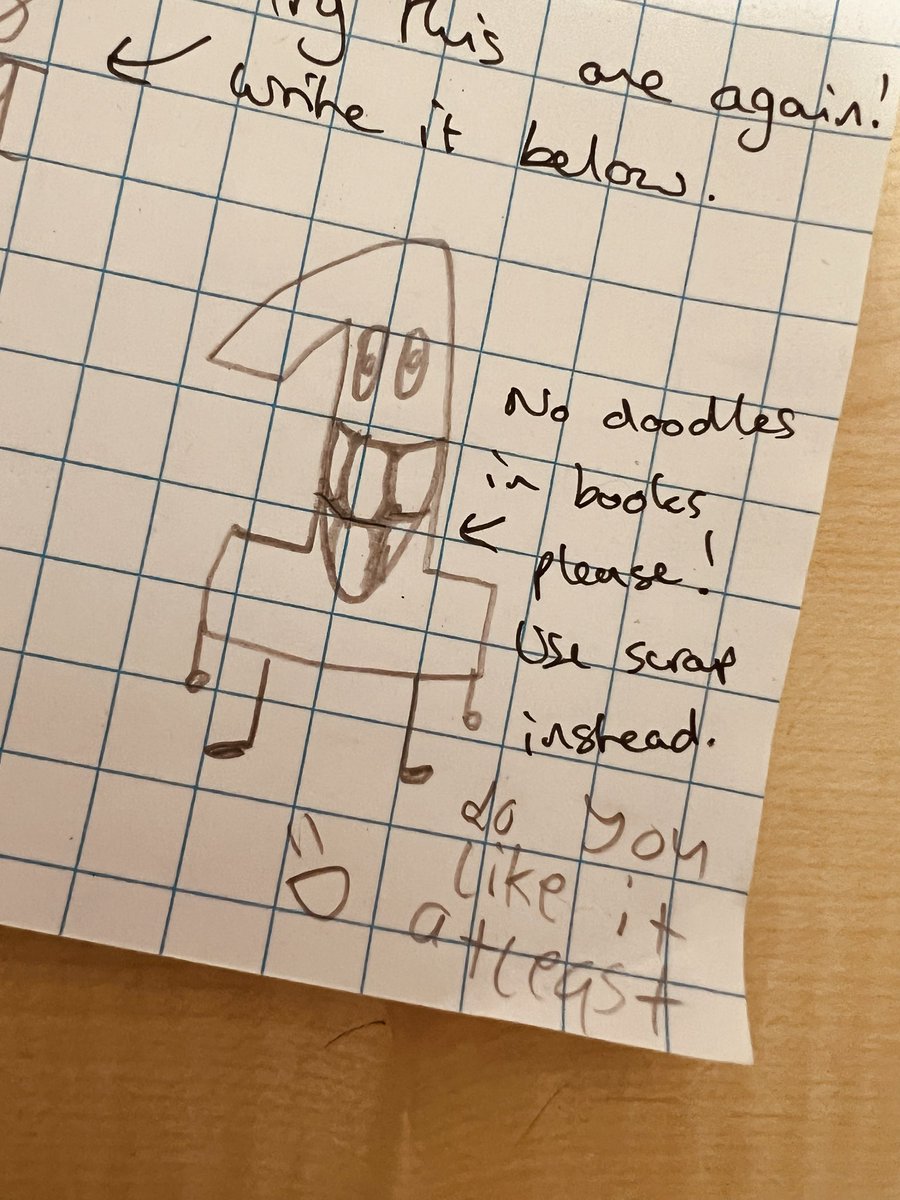 this one again!
write it below.
No doodles
in books
please!
Use scrap
instead.
do you
like it
atleast